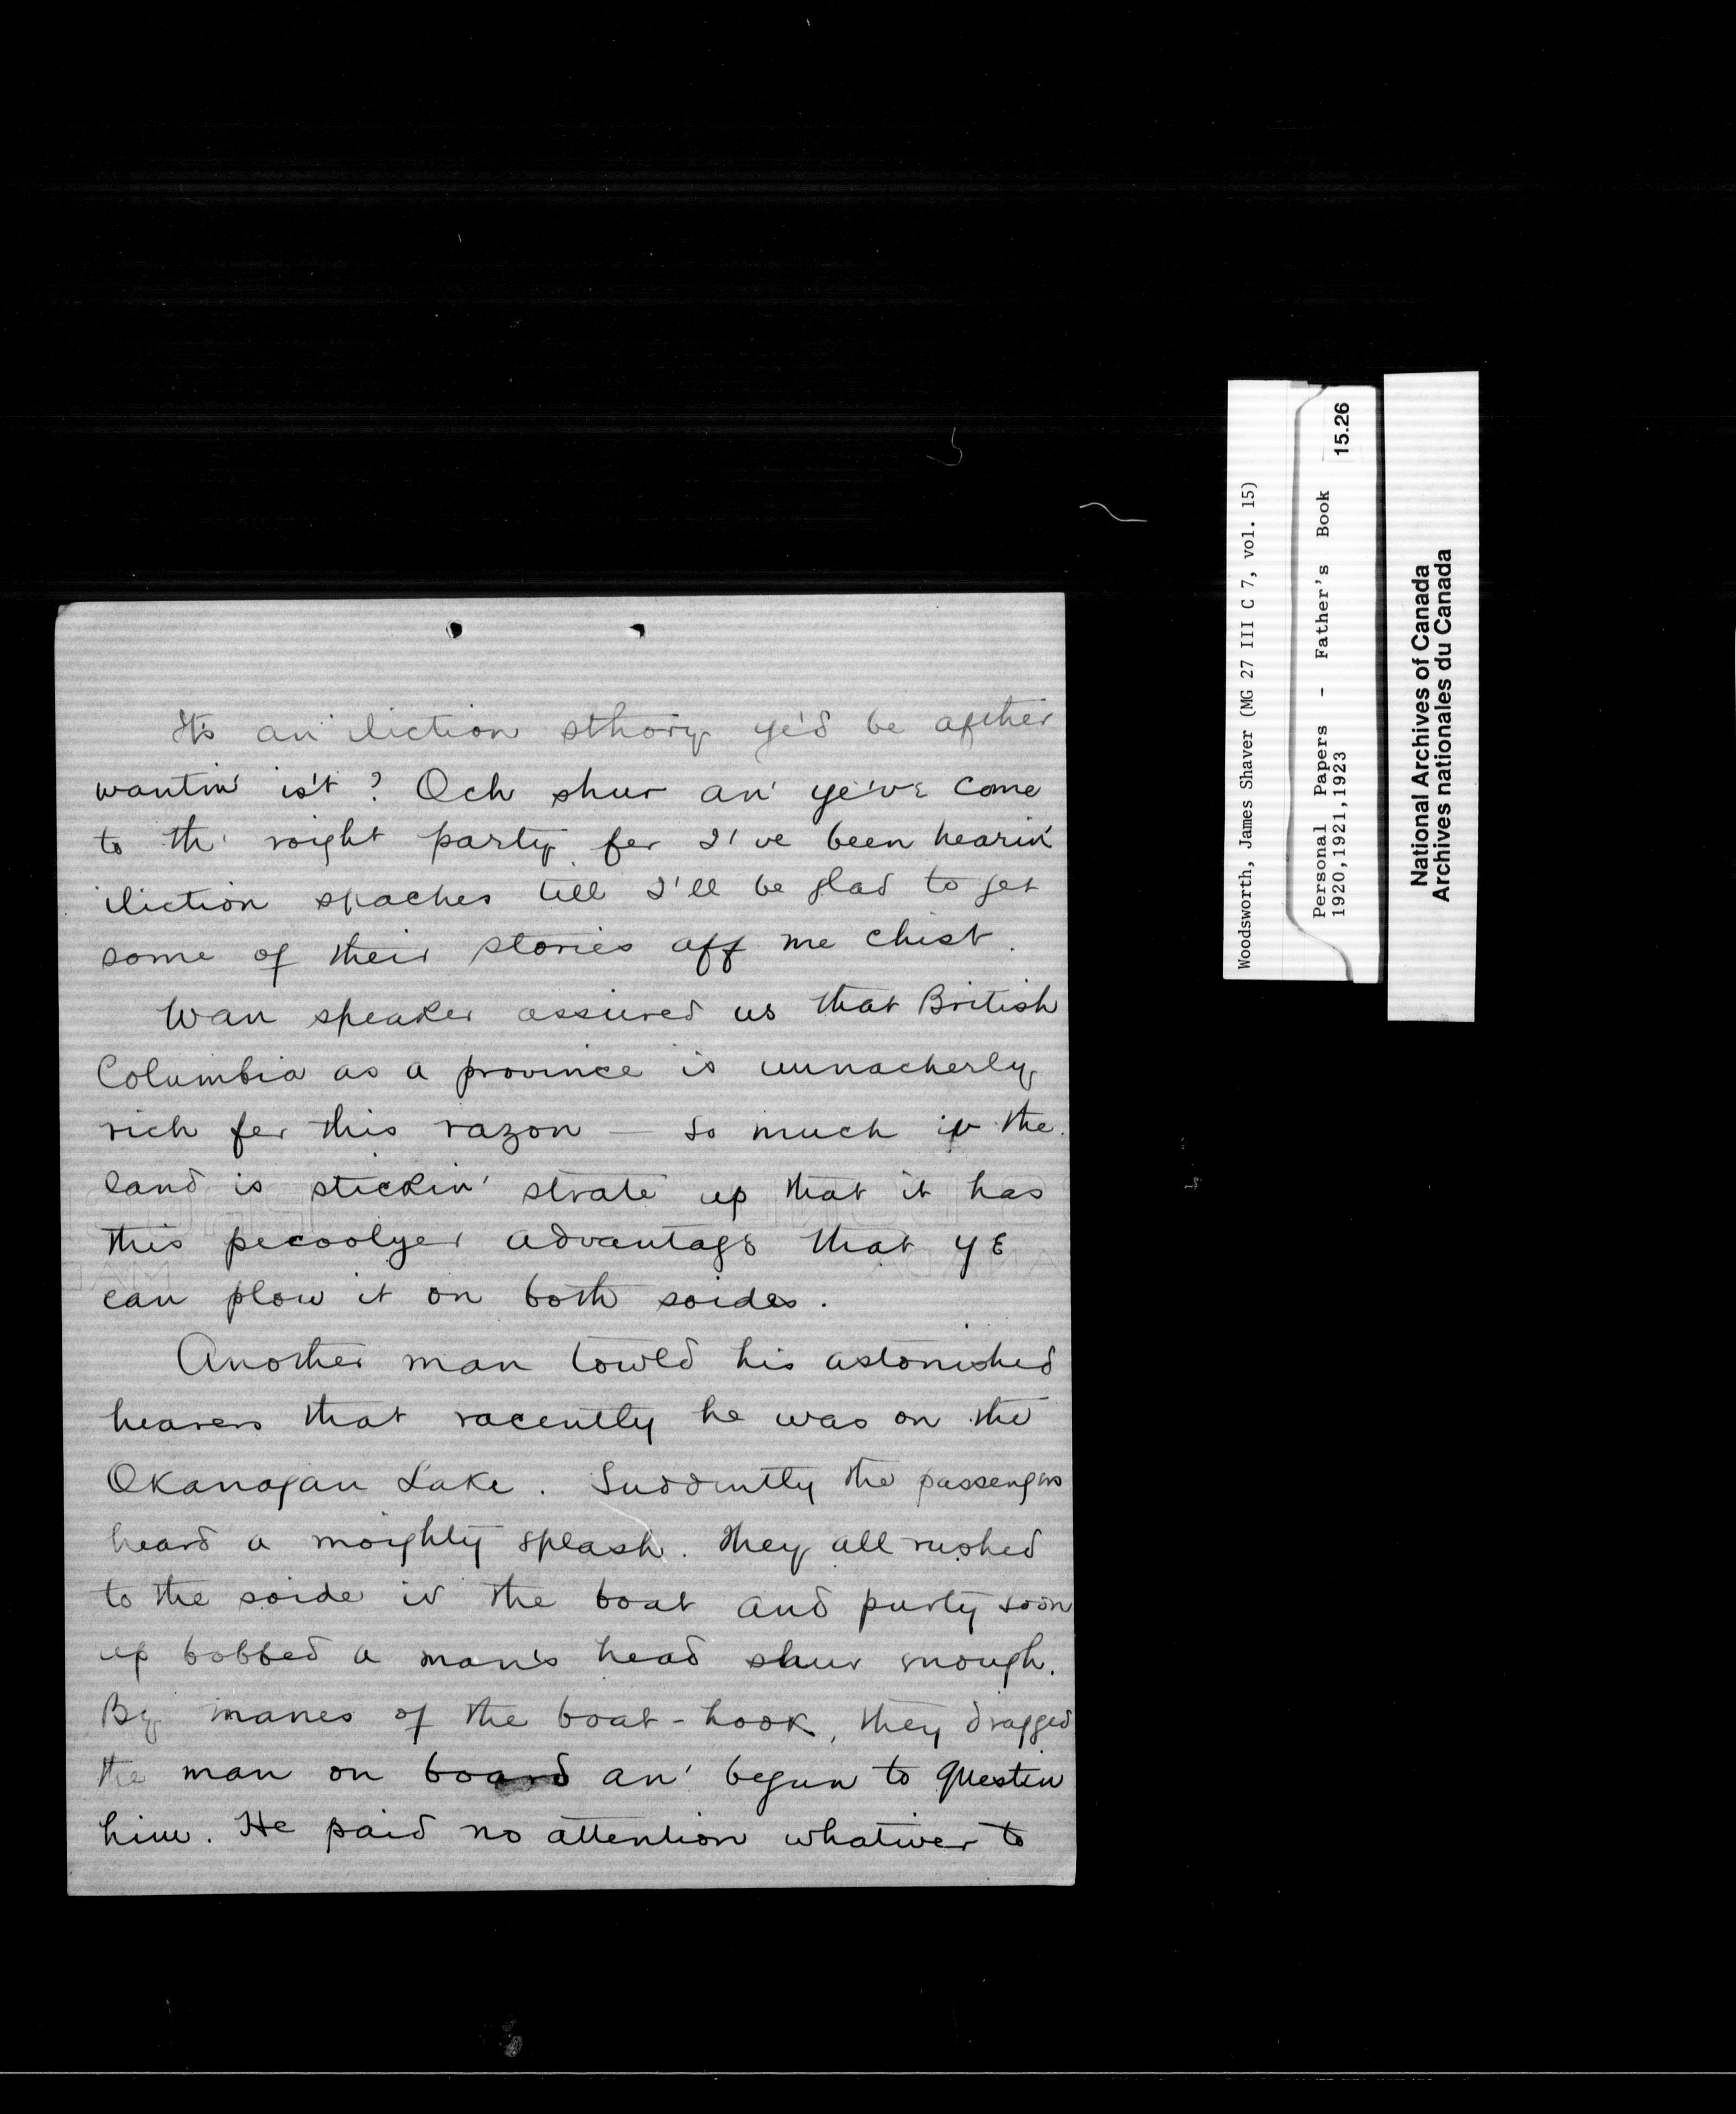 It's an 'liction sthory ye'd be afther
wantin' is't? Och shur an' ye've come
to th' roight party fer I've been hearin'
'iliction spaches till I'll be glad to get
some of their stories aff me chist.
Wan speaker assured us that British
Columbia as a province is unnacherly
rich fer this razon — so much iv the
land is stickin' strate up that it has
this pecoolyer advantage that ye
can plow it on both soides.
Another man towld his astonished
hearers that racently he was on the
Okanagan Lake. Suddintly the passengers
heard a moighty splash. They all rushed
to the soide iv the boat and purty soon
up bobbed a man's head shur enough.
By manes of the boat-hook, they dragged
the man on board an' begun to questin
him. He paid no attention whativer to
Woodsworth, James Shaver (MG 27 III C 7, vol. 15)
Personal Papers - Father's Book
1920,1921,1923
15.26
National Archives of Canada
Archives nationales du Canada